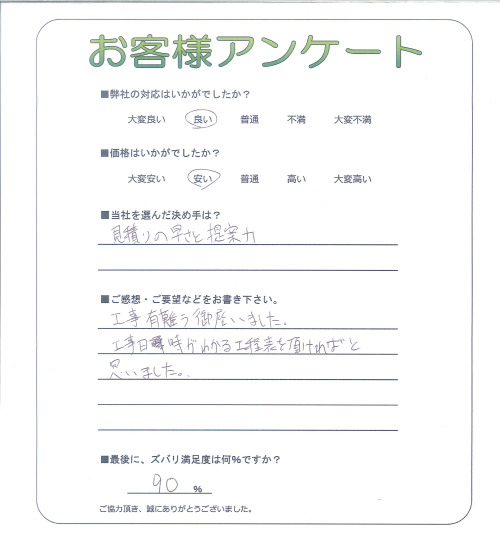 お客様アンケート
■弊社の対応はいかがでしたか？
大変良い 良い 普通 不満 大変不満
■価格はいかがでしたか？
大変安い 安い 普通 高い 大変高い
■当社を選んだ決め手は？
見積りの早さと提案力
■ご感想・ご要望などをお書き下さい。
工事有難う御座いました。
工事日時がわかる工程表を頂ければと
思いました。
■最後に、ズバリ満足度は何％ですか？
90 %
ご協力頂き、誠にありがとうございました。